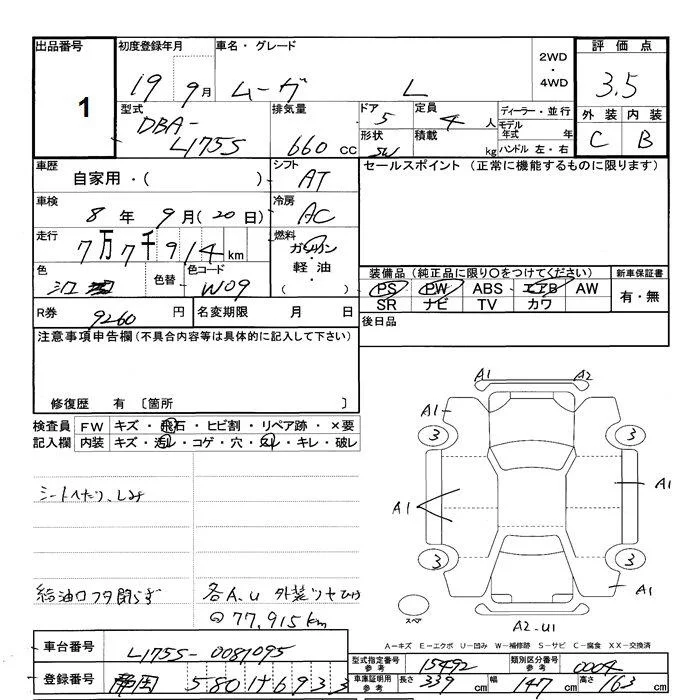 出品番号 初度登録年月 車名・グレード 評価点
1
19 9月 ムーヴ L
2WD
・
4WD
3.5
型式 排気量 ドア 定員 ディーラー・並行 外装 内装
DBA-
L175S 660 cc 5 4人
形状 積載 モデル年式 年
5W kg ハンドル 左・右
C B
車歴 シフト セールスポイント (正常に機能するものに限ります)
自家用・( ) AT
車検 冷房
8年 9月(20日) AC
走行 燃料
7万7千914km ガソリン
・
軽油
( )
色 色替 色コード
W09
装備品(純正品に限り○をつけてください) 新車保証書
PS PW ABS エアB AW 有・無
SR ナビ TV カワ
R券 9260 円 名変期限 月 日
後日品
注意事項申告欄(不具合内容等は具体的に記入して下さい)
修復歴 有 〔箇所 〕
検査員 FW キズ・飛石・ヒビ割・リペア跡・×要
記入欄 内装 キズ・汚レ・コゲ・穴・スレ・キレ・破レ
シートへたり、しみ
給油口フタ閉らず 各A、U 外装ツヤひけ
77,915km
A1 A2
A1
3 3
A1 A1
3 3
A1
スペア
A2-U1
A-キズ E-エクボ U-凹み W-補修跡 S-サビ C-腐食 XX-交換済
車台番号 L175S-0081095
型式指定番号参考 15492 類別区分番号参考 0004
登録番号 静岡 580 け 6933
車庫証明用参考 長さ 339cm 幅 147cm 高さ 163cm